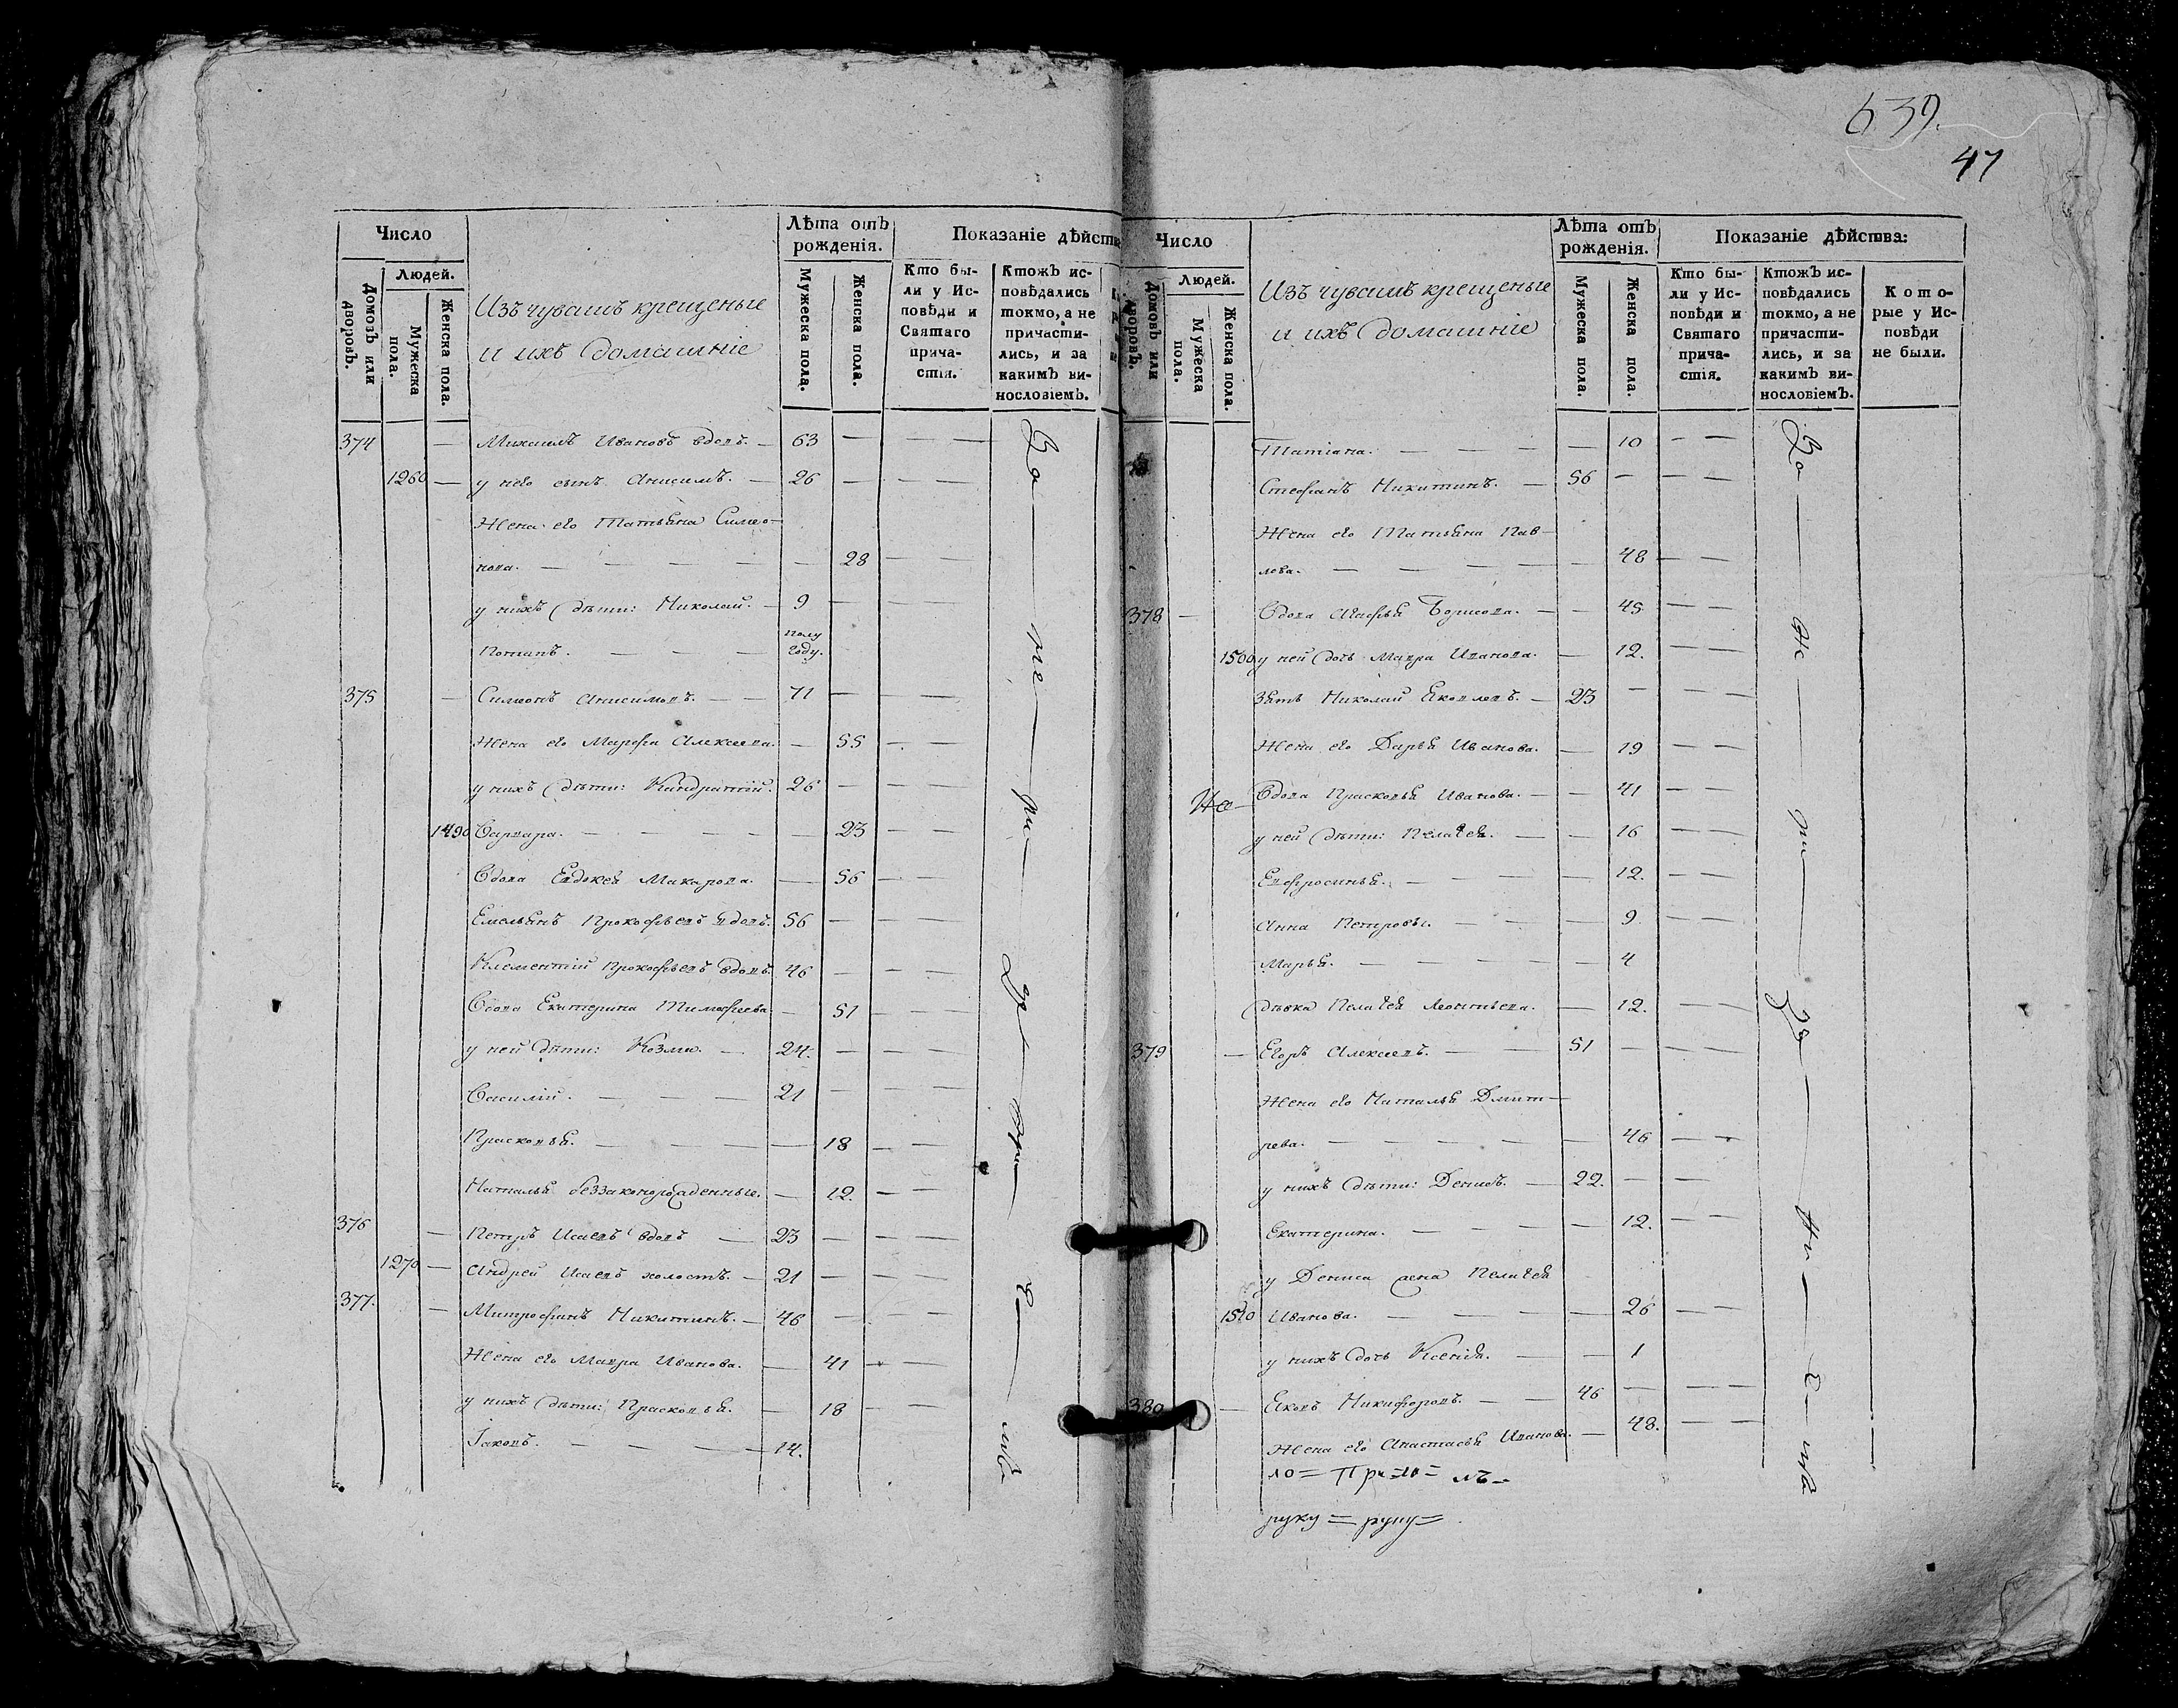 639.
47
Число
Людей.
Домовъ или дворовъ.
Мужеска пола.
Женска пола.
Изъ чувашъ крещеные
и ихъ домашніе
Лѣта отъ рожденія.
Мужеска пола.
Женска пола.
Показаніе дѣйства
Кто бы-
ли у Ис-
повѣди и
Святаго
прича-
стія.
Ктожъ ис-
повѣдались
токмо, а не
причасти-
лись, и за
какимъ ви-
нословіемъ.
374 — Михаилъ Ивановъ вдовъ. — 63 — — —
1260 — у него сынъ Анисимъ. — 26 — — —
Жена его Татьяна Симео-
нова. — — — — — 28 — —
у нихъ дѣти: Николай. — 9 — — —
Потапъ. — — — полу году.
375 — Симеонъ Анисимовъ. — — 71 — — —
Жена его Марфа Алексеева. — 55 — —
у нихъ дѣти: Кандратий. 26 — — —
1490 Варвара. — — — — — 23 — —
Вдова Евдокея Макарова. — 56 — —
Емельянъ Прокофьевъ вдовъ. 56 — — —
Клементий Прокофьевъ вдовъ. 46 — — —
Вдова Екатерина Тимофеева. — 51 — —
у ней дѣти: Козма. — 24. — — —
Василий. — — — 21 — — —
Прасковья. — — — — 18 — —
Наталья беззаконорожденные. — 12. — —
376 — Петръ Исаевъ вдовъ — 23 — — —
1270 — Андрей Исаевъ холостъ. — 21 — — —
377. — Митрофанъ Никитинъ. — 46 — — —
Жена его Мавра Иванова. — 41 — —
у нихъ дѣти: Прасковья. — 18 — —
Іаковъ. — — — — 14.
Число
Людей.
Домовъ или дворовъ.
Мужеска пола.
Женска пола.
Изъ чувашъ крещеные
и ихъ домашніе
Лѣта отъ рожденія.
Мужеска пола.
Женска пола.
Показаніе дѣйства:
Кто бы-
ли у Ис-
повѣди и
Святаго
прича-
стія.
Ктожъ ис-
повѣдались
токмо, а не
причасти-
лись, и за
какимъ ви-
нословіемъ.
Кото-
рые у Ис-
повѣди
не были.
Татіана. — — — — 10 — —
Стефанъ Никитинъ. — 56 — — —
Жена его Татьяна Пав-
лова. — — — — — 48 — —
378 — Вдова Агафья Борисова. — — 45 — —
1500 у ней дочь Мавра Иванова. — 12. — —
Зять Николай Яковлевъ. — 23 — — —
Жена его Дарья Иванова. — 19 — —
Вдова Прасковья Иванова. — — 41 — —
у ней дѣти: Пелагея. — — 16 — —
Ефросинья. — — — — 12. — —
Анна Петровы. — — — 9 — —
Марья. — — — — 4
дѣвка Пелагея Леонтьева. — 12. — —
379 — Егоръ Алексеевъ. — — 51 — — —
Жена его Наталья Дмит-
рева. — — — — — 46 — —
у нихъ дѣти: Денисъ. — 22. — —
Екатерина. — — — — 12. — —
у Дениса жена Пелагея
1510 Иванова. — — — — 26 — —
у нихъ дочь Ксенія. — — 1
380 — Яковъ Никифоровъ. — — 46 — — —
Жена его Анастасья Иванова. — 48. — —
руку =